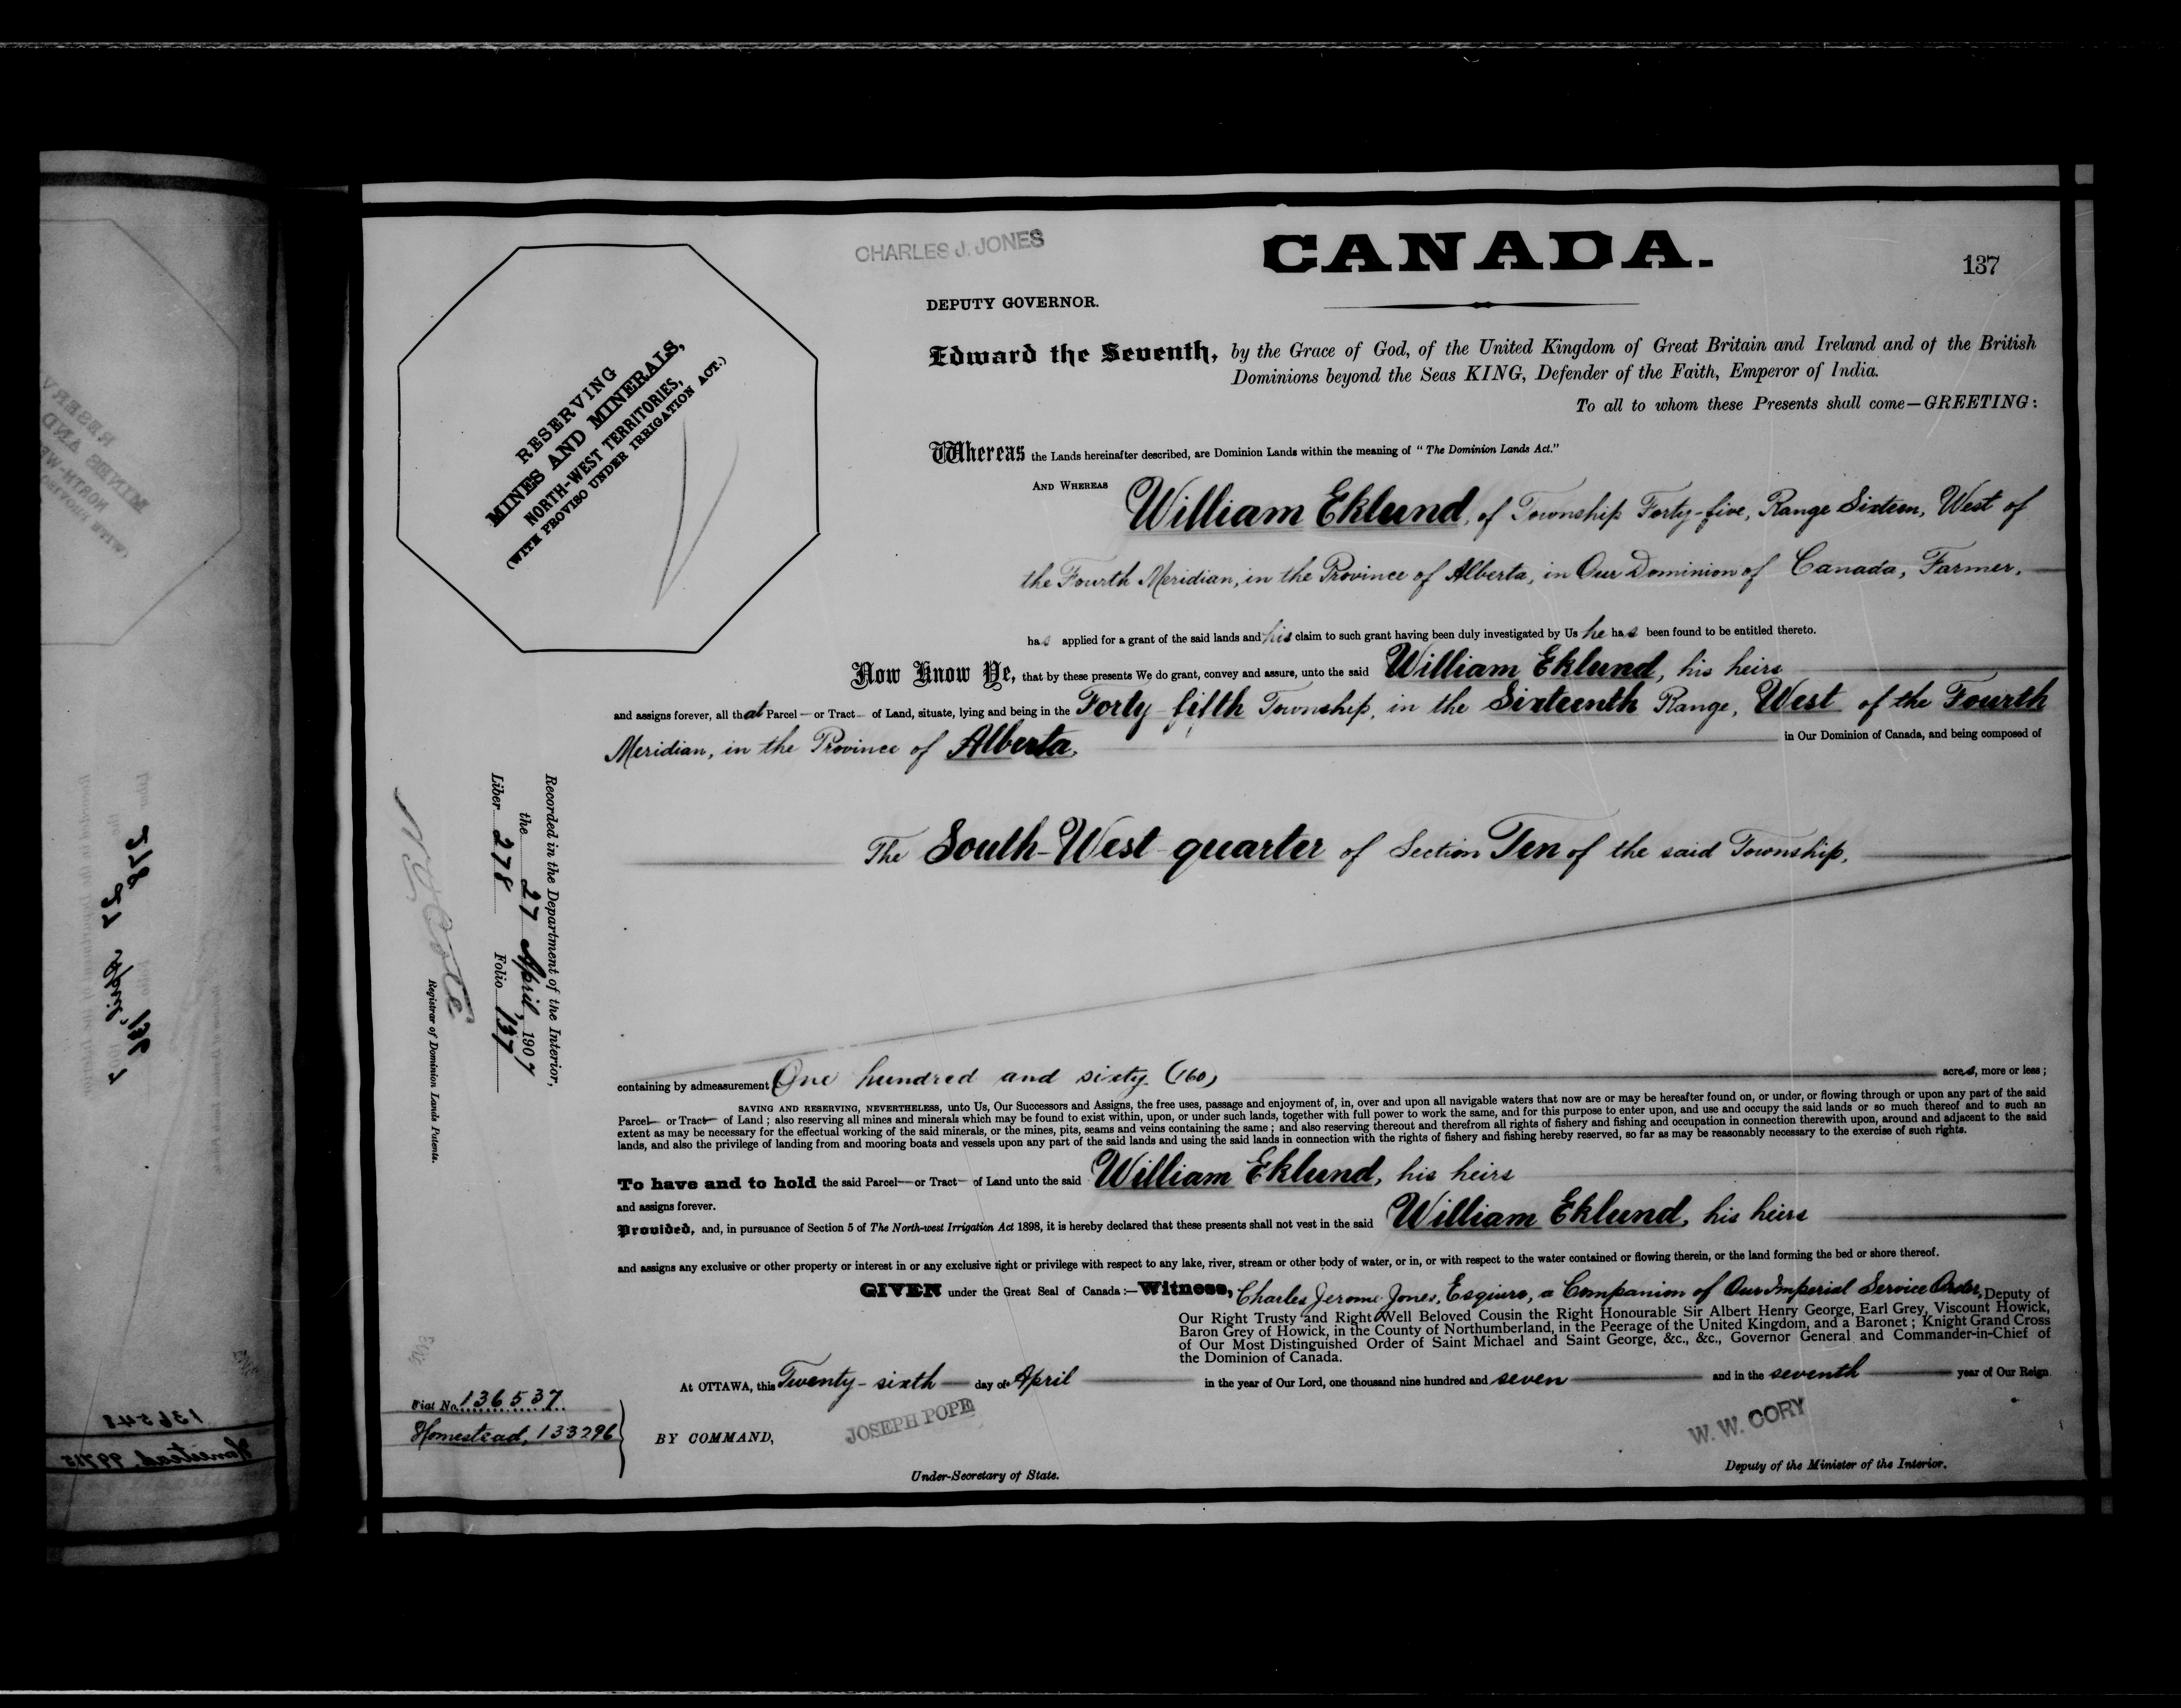 CHARLES J. JONES
CANADA.
137
DEPUTY GOVERNOR.
RESERVING
MINES AND MINERALS,
NORTH-WEST TERRITORIES,
(WITH PROVISO UNDER IRRIGATION ACT.)
Edward the Seventh, by the Grace of God, of the United Kingdom of Great Britain and Ireland and of the British
Dominions beyond the Seas KING, Defender of the Faith, Emperor of India.
To all to whom these Presents shall come—GREETING:
Whereas the Lands hereinafter described, are Dominion Lands within the meaning of "The Dominion Lands Act."
AND WHEREAS William Eklund, of Township Forty-five, Range Sixteen, West of
the Fourth Meridian, in the Province of Alberta, in Our Dominion of Canada, Farmer,
has applied for a grant of the said lands and his claim to such grant having been duly investigated by Us he has been found to be entitled thereto.
Now Know Ye, that by these presents We do grant, convey and assure, unto the said William Eklund, his heirs
and assigns forever, all that Parcel — or Tract — of Land, situate, lying and being in the Forty-fifth Township, in the Sixteenth Range, West of the Fourth
Meridian, in the Province of Alberta, in Our Dominion of Canada, and being composed of
The South-West quarter of Section Ten of the said Township,
containing by admeasurement One hundred and sixty (160) acres, more or less;
SAVING AND RESERVING, NEVERTHELESS, unto Us, Our Successors and Assigns, the free uses, passage and enjoyment of, in, over and upon all navigable waters that now are or may be hereafter found on, or under, or flowing through or upon any part of the said
Parcel — or Tract — of Land; also reserving all mines and minerals which may be found to exist within, upon, or under such lands, together with full power to work the same, and for this purpose to enter upon, and use and occupy the said lands or so much thereof and to such an
extent as may be necessary for the effectual working of the said minerals, or the mines, pits, seams and veins containing the same; and also reserving thereout and therefrom all rights of fishery and fishing and occupation in connection therewith upon, around and adjacent to the said
lands, and also the privilege of landing from and mooring boats and vessels upon any part of the said lands and using the said lands in connection with the rights of fishery and fishing hereby reserved, so far as may be reasonably necessary to the exercise of such rights.
To have and to hold the said Parcel — or Tract — of Land unto the said William Eklund, his heirs
and assigns forever.
Provided, and, in pursuance of Section 5 of The North-west Irrigation Act 1898, it is hereby declared that these presents shall not vest in the said William Eklund, his heirs
and assigns any exclusive or other property or interest in or any exclusive right or privilege with respect to any lake, river, stream or other body of water, or in, or with respect to the water contained or flowing therein, or the land forming the bed or shore thereof.
GIVEN under the Great Seal of Canada:—Witness, Charles Jerome Jones, Esquire, a Companion of Our Imperial Service Order, Deputy of
Our Right Trusty and Right Well Beloved Cousin the Right Honourable Sir Albert Henry George, Earl Grey, Viscount Howick,
Baron Grey of Howick, in the County of Northumberland, in the Peerage of the United Kingdom, and a Baronet; Knight Grand Cross
of Our Most Distinguished Order of Saint Michael and Saint George, &c., &c., Governor General and Commander-in-Chief of
the Dominion of Canada.
At OTTAWA, this Twenty-sixth day of April in the year of Our Lord, one thousand nine hundred and seven and in the seventh year of Our Reign.
BY COMMAND,
JOSEPH POPE
Under-Secretary of State.
W. W. CORY
Deputy of the Minister of the Interior.
Recorded in the Department of the Interior,
the 27 April, 1907
Liber 278 Folio 137
N. O. Coté
Registrar of Dominion Lands Patents.
Fiat No. 136537
Homestead, 133296
136548
Homestead, 99715